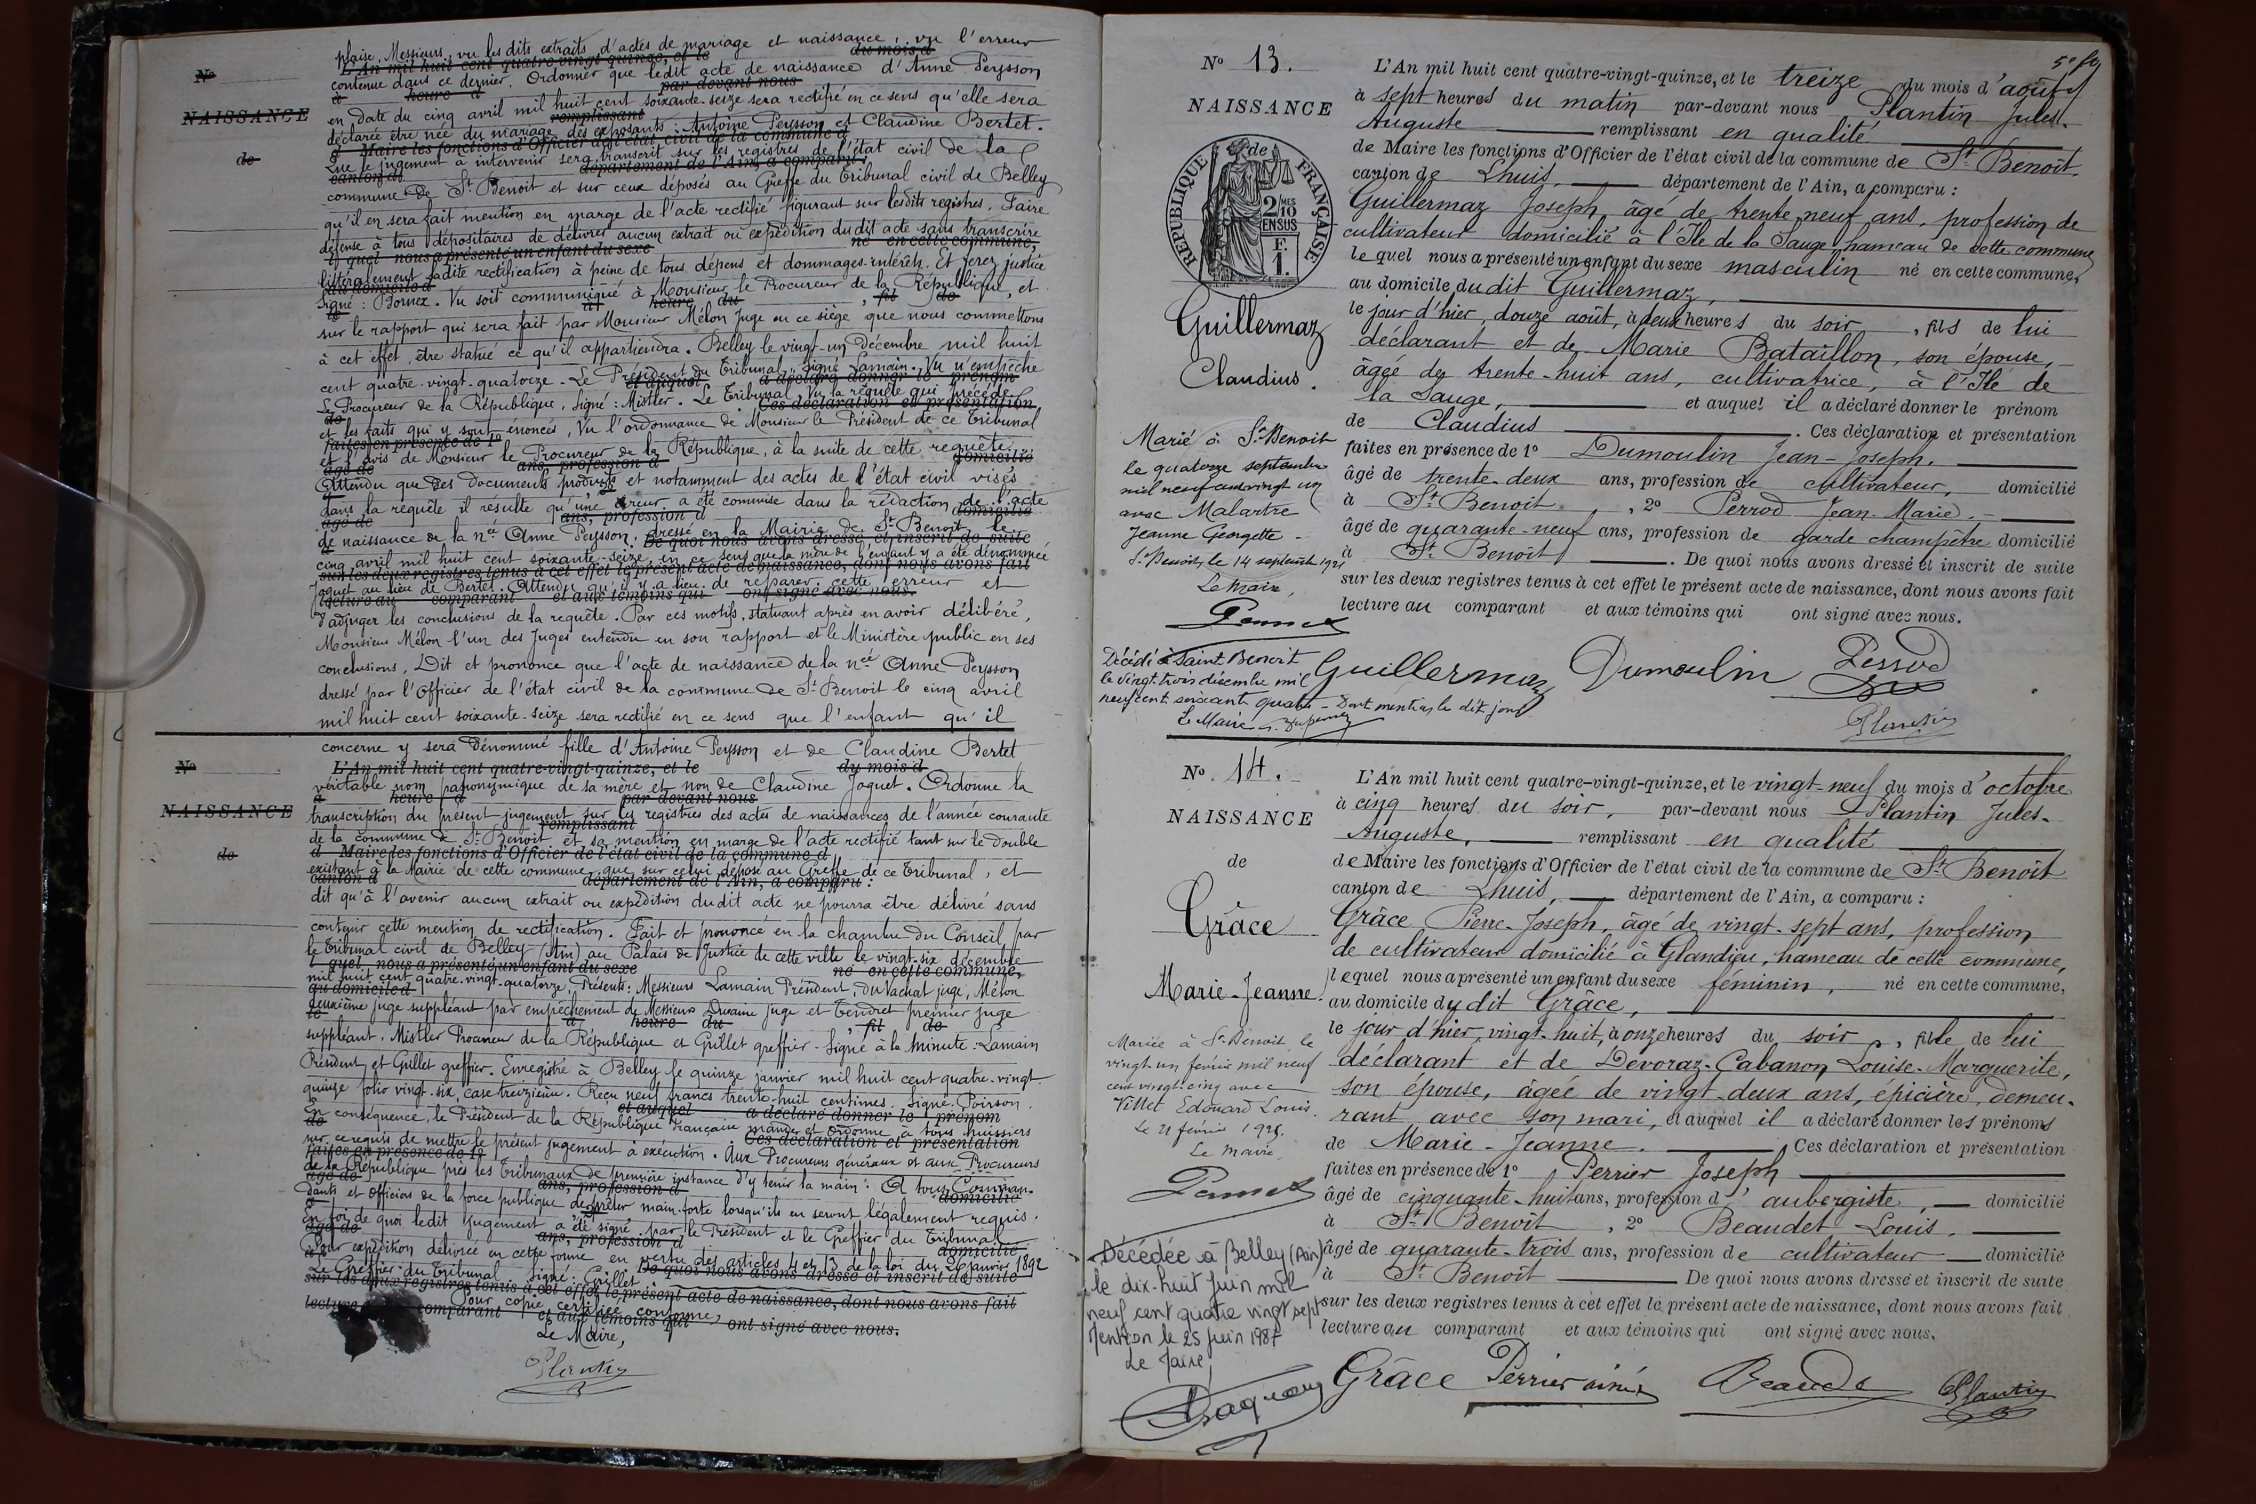 plaise, Messieurs, vu les dits extraits d'actes de mariage et naissance, vu l'erreur
L'An mil huit cent quatre-vingt-quinze, et le du mois d
contenue dans ce dernier. Ordonner que ledit acte de naissance d'Anne Peysson
à heure d par devant nous
en date du cinq avril mil huit cent soixante-seize sera rectifié en ce sens qu'elle sera
remplissant
déclarée être née du mariage des exposants : Antoine Peysson et Claudine Bertet.
d Maire les fonctions d'Officier de l'état civil de la commune d
Que le jugement à intervenir sera transcrit sur les registres de l'état civil de la
canton d département de l'Ain, a comparu :
commune de St Benoit et sur ceux déposés au Greffe du Tribunal civil de Belley
qu'il en sera fait mention en marge de l'acte rectifié figurant sur lesdits registres. Faire
défense à tous dépositaires de délivrer aucun extrait ou expédition dudit acte sans transcrire
l quel nous a présenté un enfant du sexe né en cette commune,
littéralement ladite rectification à peine de tous dépens et dommages-intérêts. Et ferez justice
au domicile d
Signé : Bornex. Vu soit communiqué à Monsieur le Procureur de la République, et
le à heure du , fil de
sur le rapport qui sera fait par Monsieur Mélon Juge en ce siège que nous commettons
à cet effet, être statué ce qu'il appartiendra. Belley le vingt-un Décembre mil huit
cent quatre-vingt-quatorze. Le Président du Tribunal, Signé Lamain. Vu n'empêche
et auquel a déclaré donner le prénom
Le Procureur de la République, signé : Mistler. Le Tribunal, Vu la requête qui précède
de Ces déclaration et présentation
et les faits qui y sont énoncés, Vu l'ordonnance de Monsieur le Président de ce Tribunal
faites en présence de 1º
et l'avis de Monsieur le Procureur de la République, à la suite de cette requête.
âgé de ans, profession d domicilié
Attendu que des documents produits et notamment des actes de l'état civil visés
dans la requête il résulte qu'une erreur a été commise dans la rédaction de l'acte
âgé de ans, profession d domicilié
de naissance de la née Anne Peysson, dressé en la Mairie de St Benoit, le
à De quoi nous avons dressé et inscrit de suite
cinq avril mil huit cent soixante-seize, en ce sens que la mère de l'enfant y a été dénommée
sur les deux registres tenus à cet effet le présent acte de naissance, dont nous avons fait
Joguet au lieu de Bertet. Attendu qu'il y a lieu de réparer cette erreur et
lecture au comparant et aux témoins qui ont signé avec nous.
d'adjuger les conclusions de la requête. Par ces motifs, statuant après en avoir délibéré,
Monsieur Mélon l'un des Juges entendu en son rapport et le Ministère public en ses
conclusions, Dit et prononce que l'acte de naissance de la née Anne Peysson
dressé par l'Officier de l'état civil de la commune de St Benoit le cinq avril
mil huit cent soixante-seize sera rectifié en ce sens que l'enfant qu'il
Nº
NAISSANCE
de
concerne y sera dénommé fille d'Antoine Peysson et de Claudine Bertet
L'An mil huit cent quatre-vingt-quinze, et le du mois d
véritable nom patronymique de sa mère et non de Claudine Joguet. Ordonne la
à heure d par devant nous
transcription du présent jugement sur les registres des actes de naissances de l'année courante
remplissant
de la commune de St Benoit et sa mention en marge de l'acte rectifié tant sur le double
d Maire les fonctions d'Officier de l'état civil de la commune d
existant à la Mairie de cette commune que sur celui déposé au Greffe de ce Tribunal, et
canton d département de l'Ain, a comparu :
dit qu'à l'avenir aucun extrait ou expédition dudit acte ne pourra être délivré sans
contenir cette mention de rectification. Fait et prononcé en la chambre du Conseil, par
le Tribunal civil de Belley (Ain) au Palais de Justice de cette ville le vingt-six décembre
l quel nous a présenté un enfant du sexe né en cette commune,
mil huit cent quatre-vingt-quatorze, Présents : Messieurs Lamain Président, Du Vachat juge, Mélon
au domicile d
deuxième juge suppléant par empêchement de Messieurs Duraine juge et Tendret premier juge
le à heure du , fil de
suppléant. Mistler Procureur de la République et Grillet greffier. Signé à la Minute : Lamain
Président et Grillet greffier. Enregistré à Belley le quinze janvier mil huit cent quatre-vingt-
quinze folio vingt-six, case treizième. Reçu neuf francs trente-huit centimes. Signé. Poisson.
et auquel a déclaré donner le prénom
En conséquence, le Président de la République française mande et ordonne à tous huissiers
de Ces déclaration et présentation
sur ce requis de mettre le présent jugement à exécution. Aux Procureurs généraux et aux Procureurs
faites en présence de 1º
de la République près les Tribunaux de première instance d'y tenir la main. A tous Comman-
âgé de ans, profession d domicilié
dants et Officiers de la force publique de prêter main-forte lorsqu'ils en seront légalement requis.
En foi de quoi ledit jugement a été signé par le Président et le Greffier du Tribunal
âgé de ans, profession d domicilié
Pour expédition délivrée en cette forme en vertu des articles 4 et 13 de la loi du 26 janvier 1892
Le Greffier du Tribunal Signé : Grillet
De quoi nous avons dressé et inscrit de suite
sur les deux registres tenus à cet effet le présent acte de naissance, dont nous avons fait
Pour copie certifiée conforme,
lecture comparant et aux témoins qui ont signé avec nous.
Le Maire,
Plantin
Nº
NAISSANCE
de
5e fo
Nº 13.
NAISSANCE
de
RÉPUBLIQUE FRANÇAISE
2 MES 10 EN SUS
F. 1.
Guillermaz
Claudius.
Marié à St Benoit
le quatorze septembre
mil neuf cent vingt un
avec Malartre
Jeanne Georgette -
St Benoit, le 14 septembre 1921
Le Maire,
Décédé à Saint Benoit
le vingt trois décembre mil
neuf cent soixante quatre - Dont mention le dit jour
Le Maire
L'An mil huit cent quatre-vingt-quinze, et le treize du mois d'août
à sept heures du matin par-devant nous Plantin Jules-
Auguste remplissant en qualité
de Maire les fonctions d'Officier de l'état civil de la commune de St Benoit,
canton de Lhuis, département de l'Ain, a comparu :
Guillermaz Joseph, âgé de trente neuf ans, profession de
cultivateur domicilié à l'Ile de la Sauge, hameau de cette commune
le quel nous a présenté un enfant du sexe masculin né en cette commune,
au domicile du dit Guillermaz,
le jour d'hier, douze août, à deux heures du soir, fils de lui
déclarant et de Marie Bataillon, son épouse,
âgée de trente-huit ans, cultivatrice, à l'Ile de
la Sauge, et auquel il a déclaré donner le prénom
de Claudius. Ces déclaration et présentation
faites en présence de 1º Dumoulin Jean-Joseph,
âgé de trente-deux ans, profession de cultivateur, domicilié
à St Benoit, 2º Perrod Jean-Marie.
âgé de quarante-neuf ans, profession de garde champêtre domicilié
à St Benoit. De quoi nous avons dressé et inscrit de suite
sur les deux registres tenus à cet effet le présent acte de naissance, dont nous avons fait
lecture au comparant et aux témoins qui ont signé avec nous.
Guillermaz Dumoulin Perrod
Plantin
Nº 14.
NAISSANCE
de
Grâce
Marie-Jeanne.
Mariée à St Benoit le
vingt un février mil neuf
cent vingt-cinq avec
Villet Edouard Louis.
Le Maire,
Décédée à Belley (Ain)
le dix-huit juin mil
neuf cent quatre vingt sept
Mention le 25 juin 1987
Le Maire,
L'An mil huit cent quatre-vingt-quinze, et le vingt-neuf du mois d'octobre
à cinq heures du soir, par-devant nous Plantin Jules-
Auguste, remplissant en qualité
de Maire les fonctions d'Officier de l'état civil de la commune de St Benoit
canton de Lhuis, département de l'Ain, a comparu :
Grâce Pierre-Joseph, âgé de vingt-sept ans, profession
de cultivateur domicilié à Glandieu, hameau de cette commune,
lequel nous a présenté un enfant du sexe féminin, né en cette commune,
au domicile du dit Grâce,
le jour d'hier, vingt-huit, à onze heures du soir, fille de lui
déclarant et de Devoraz-Cabanon Louise-Marguerite,
son épouse, âgée de vingt-deux ans, épicière, demeu-
rant avec son mari, et auquel il a déclaré donner les prénoms
de Marie-Jeanne. Ces déclaration et présentation
faites en présence de 1º Perrier Joseph
âgé de cinquante-huit ans, profession d'aubergiste, domicilié
à St Benoit, 2º Beaudet Louis.
âgé de quarante-trois ans, profession de cultivateur domicilié
à St Benoit De quoi nous avons dressé et inscrit de suite
sur les deux registres tenus à cet effet le présent acte de naissance, dont nous avons fait
lecture au comparant et aux témoins qui ont signé avec nous.
Grâce Perrier ainé Beaudet Plantin